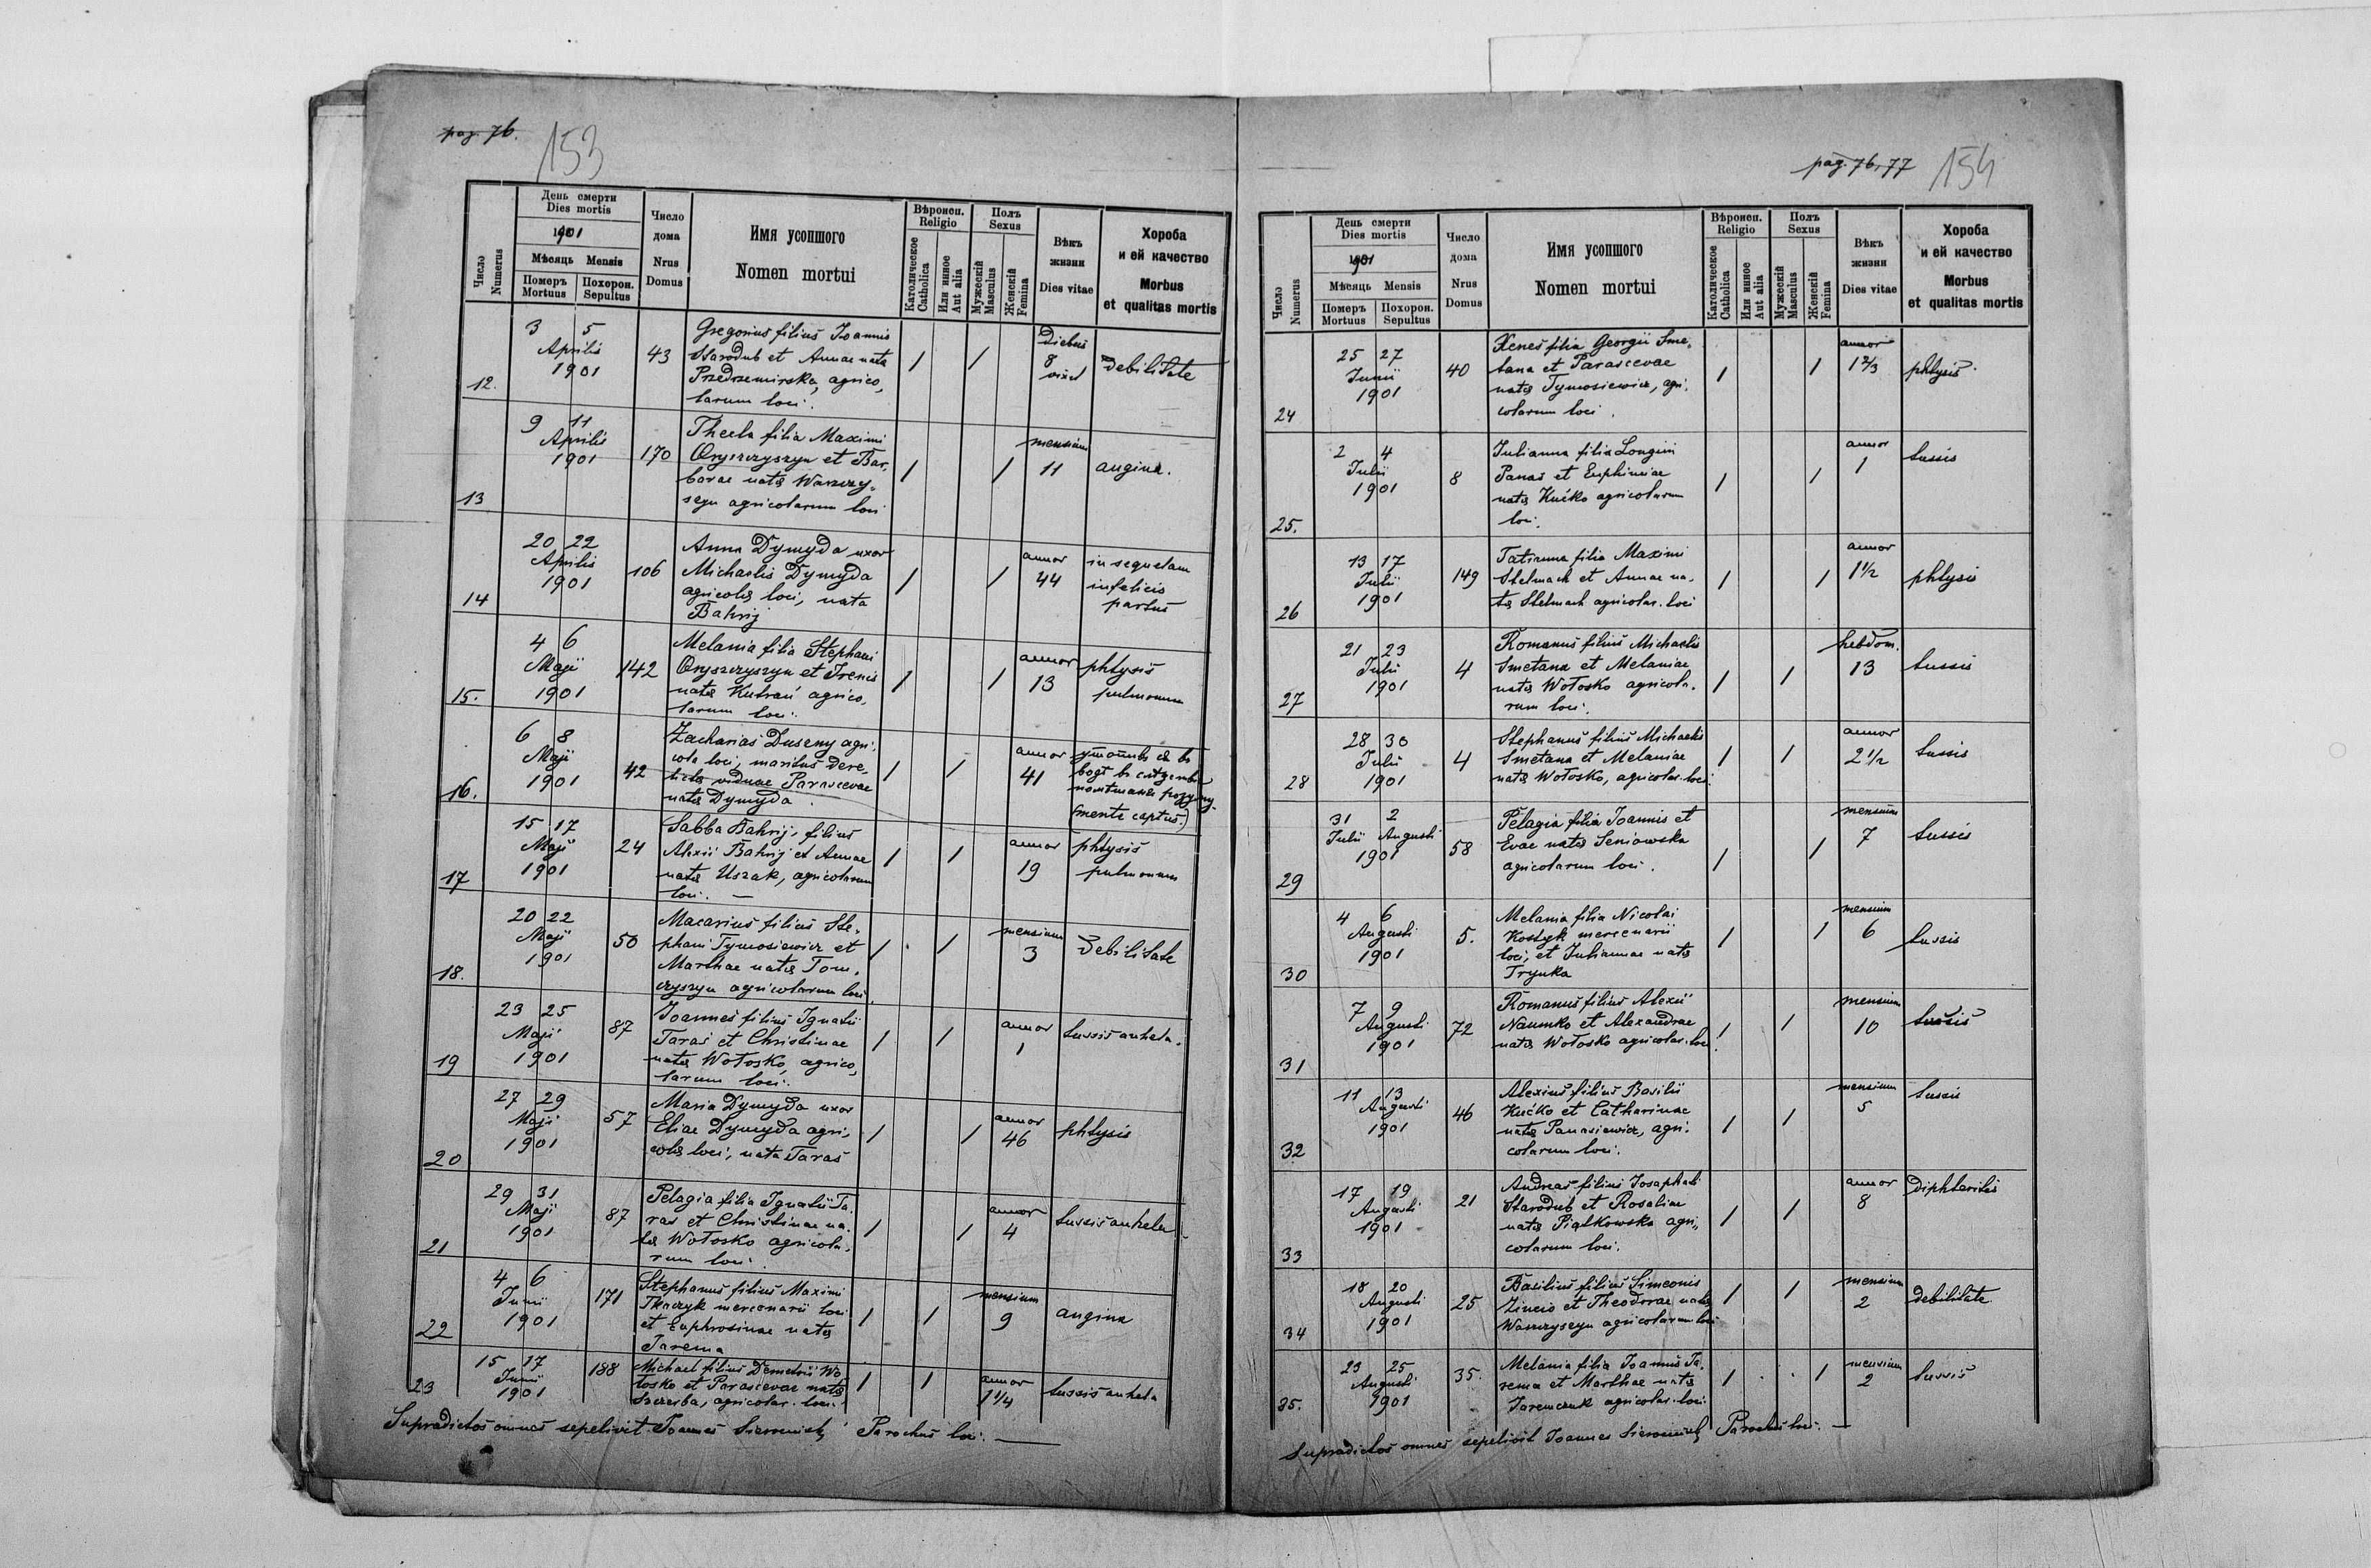 pag. 76.
153
Число Numerus
День смерти
Dies mortis
1901
Мѣсяць Mensis
Померъ Mortuus
Похорон. Sepultus
Число дома
Nrus Domus
Имя усопшого
Nomen mortui
Вѣроисп.
Religio
Католическое Catholica
Или инное Aut alia
Полъ
Sexus
Мужескій Masculus
Женскій Femina
Вѣкъ жизни
Dies vitae
Хороба
и ей качество
Morbus
et qualitas mortis
12. 3 5 Aprilis 1901 43
Gregorius filius Joannis
Starodub et Annae nata
Przedrzemirska, agrico,
larum loci.
1 1 Diebus 8 vixit debilitate
13 9 11 Aprilis 1901 170
Thecla filia Maximi
Oryszczyszyn et Bar,
barae nata Waszczy,
szyn agricolarum loci
1 1 mensium 11 angina.
14 20 22 Aprilis 1901 106
Anna Dymyda uxor
Michaelis Dymyda
agricolae loci, nata
Bahrij
1 1 annor 44 in sequelam
infelicis
partus
15. 4 6 Maji 1901 142
Melania filia Stephani
Oryszczyszyn et Irenis
nata agrico,
larum loci.
1 1 annor 13 phtysis
pulmonum
16. 6 8 Maji 1901 42
Zacharias Duseny agri,
cola loci, maritus dere,
lictae viduae Parascevae
nata Dymyda.
1 1 annor 41
(mente captus.)
17 15 17 Maji 1901 24
Sabba Bahrij, filius
Alexii Bahrij et Annae
nata Uszak, agricolarum
loci. —
1 1 annor 19 phtysis
pulmonum
18. 20 22 Maji 1901 50
Macarius filius Ste,
phani Tymosiewicz et
Marthae nata Tom,
czyszyn agricolarum loci.
1 1 mensium 3 debilitate
19 23 25 Maji 1901 87
Joannes filius Ignatii
Taras et Christinae
nata Wołosko, agrico,
larum loci.
1 1 annor 1 tussis anhela.
20 27 29 Maji 1901 57
Maria Dymyda uxor
Eliae Dymyda agri,
colae loci, nata Taras
1 1 annor 46 phtysis
21 29 31 Maji 1901 87
Pelagia filia Ignatii Ta,
ras et Christinae na,
ta Wołosko agricola,
rum loci.
1 1 annor 4 tussis anhela
22 4 6 Junii 1901 171
Stephanus filius Maximi
Tkaczyk mercenarii loci
et Euphrosinae nata
Jarema
1 1 mensium 9 angina
23 15 17 Junii 1901 188
Michael filius Demetrii Wo
łosko et Parascevae nata
Szczerba, agricolar. loci.
1 1 annor 1 1/4 tussis anhela
Supradictos omnes sepelivit Joannes Parochus loci. —
pag. 76, 77
154
Число Numerus
День смерти
Dies mortis
1901
Мѣсяць Mensis
Померъ Mortuus
Похорон. Sepultus
Число дома
Nrus Domus
Имя усопшого
Nomen mortui
Вѣроисп.
Religio
Католическое Catholica
Или инное Aut alia
Полъ
Sexus
Мужескій Masculus
Женскій Femina
Вѣкъ жизни
Dies vitae
Хороба
и ей качество
Morbus
et qualitas mortis
24 25 27 Junii 1901 40
Xenes filia Georgii Sme,
tana et Parascevae
nata Tymosiewicz, agri,
colarum loci.
1 1 annor 1 2/3 phtysis.
25. 2 4 Julii 1901 8
Julianna filia Longini
Panas et Euphimiae
nata Kućko agricolarum
loci.
1 1 annor 1 tussis
26 13 17 Julii 1901 149
Tatianna filia Maximi
Stelmach et Annae na,
ta Stelmach agricolar. loci
1 1 annor 1 1/2 phtysis
27 21 23 Julii 1901 4
Romanus filius Michaelis
Smetana et Melaniae
nata Wołosko agricola,
rum loci.
1 1 hebdom. 13 tussis
28 28 30 Julii 1901 4
Stephanus filius Michaelis
Smetana et Melaniae
nata Wołosko, agricolar. loci.
1 1 annor 2 1/2 tussis
29 31 2 Julii Augusti 1901 58
Pelagia filia Joannis et
Evae nata Seniowska
agricolarum loci.
1 1 mensium 7 tussis
30 4 6 Augusti 1901 5.
Melania filia Nicolai
Kostyk mercenarii
loci, et Juliannae nata
Trynka
1 1 mensium 6 tussis
31 7 9 Augusti 1901 72
Romanus filius Alexii
Naumko et Alexandrae
nata Wołosko agricolar. loci.
1 1 mensium 10 tussis
32 11 13 Augusti 1901 46
Alexius filius Basilii
Kućko et Catharinae
nata Panasiewicz, agri,
colarum loci.
1 1 mensium 5 tussis
33 17 19 Augusti 1901 21
Andreas filius Josaphati
Starodub et Rosaliae
nata Piątkowska agri,
colarum loci.
1 1 annor 8 diphteritis
34 18 20 Augusti 1901 25
Basilius filius Simeonis
Zincio et Theodorae nata
Waszczyszyn agricolarum loci
1 1 mensium 2 debilitate.
35. 23 25 Augusti 1901 35.
Melania filia Joannis Ja,
rema et Marthae nata
Jaremczuk agricolar. loci.
1 1 mensium 2 tussis
Supradictos omnes sepelivit Joannes Parochus loci. —